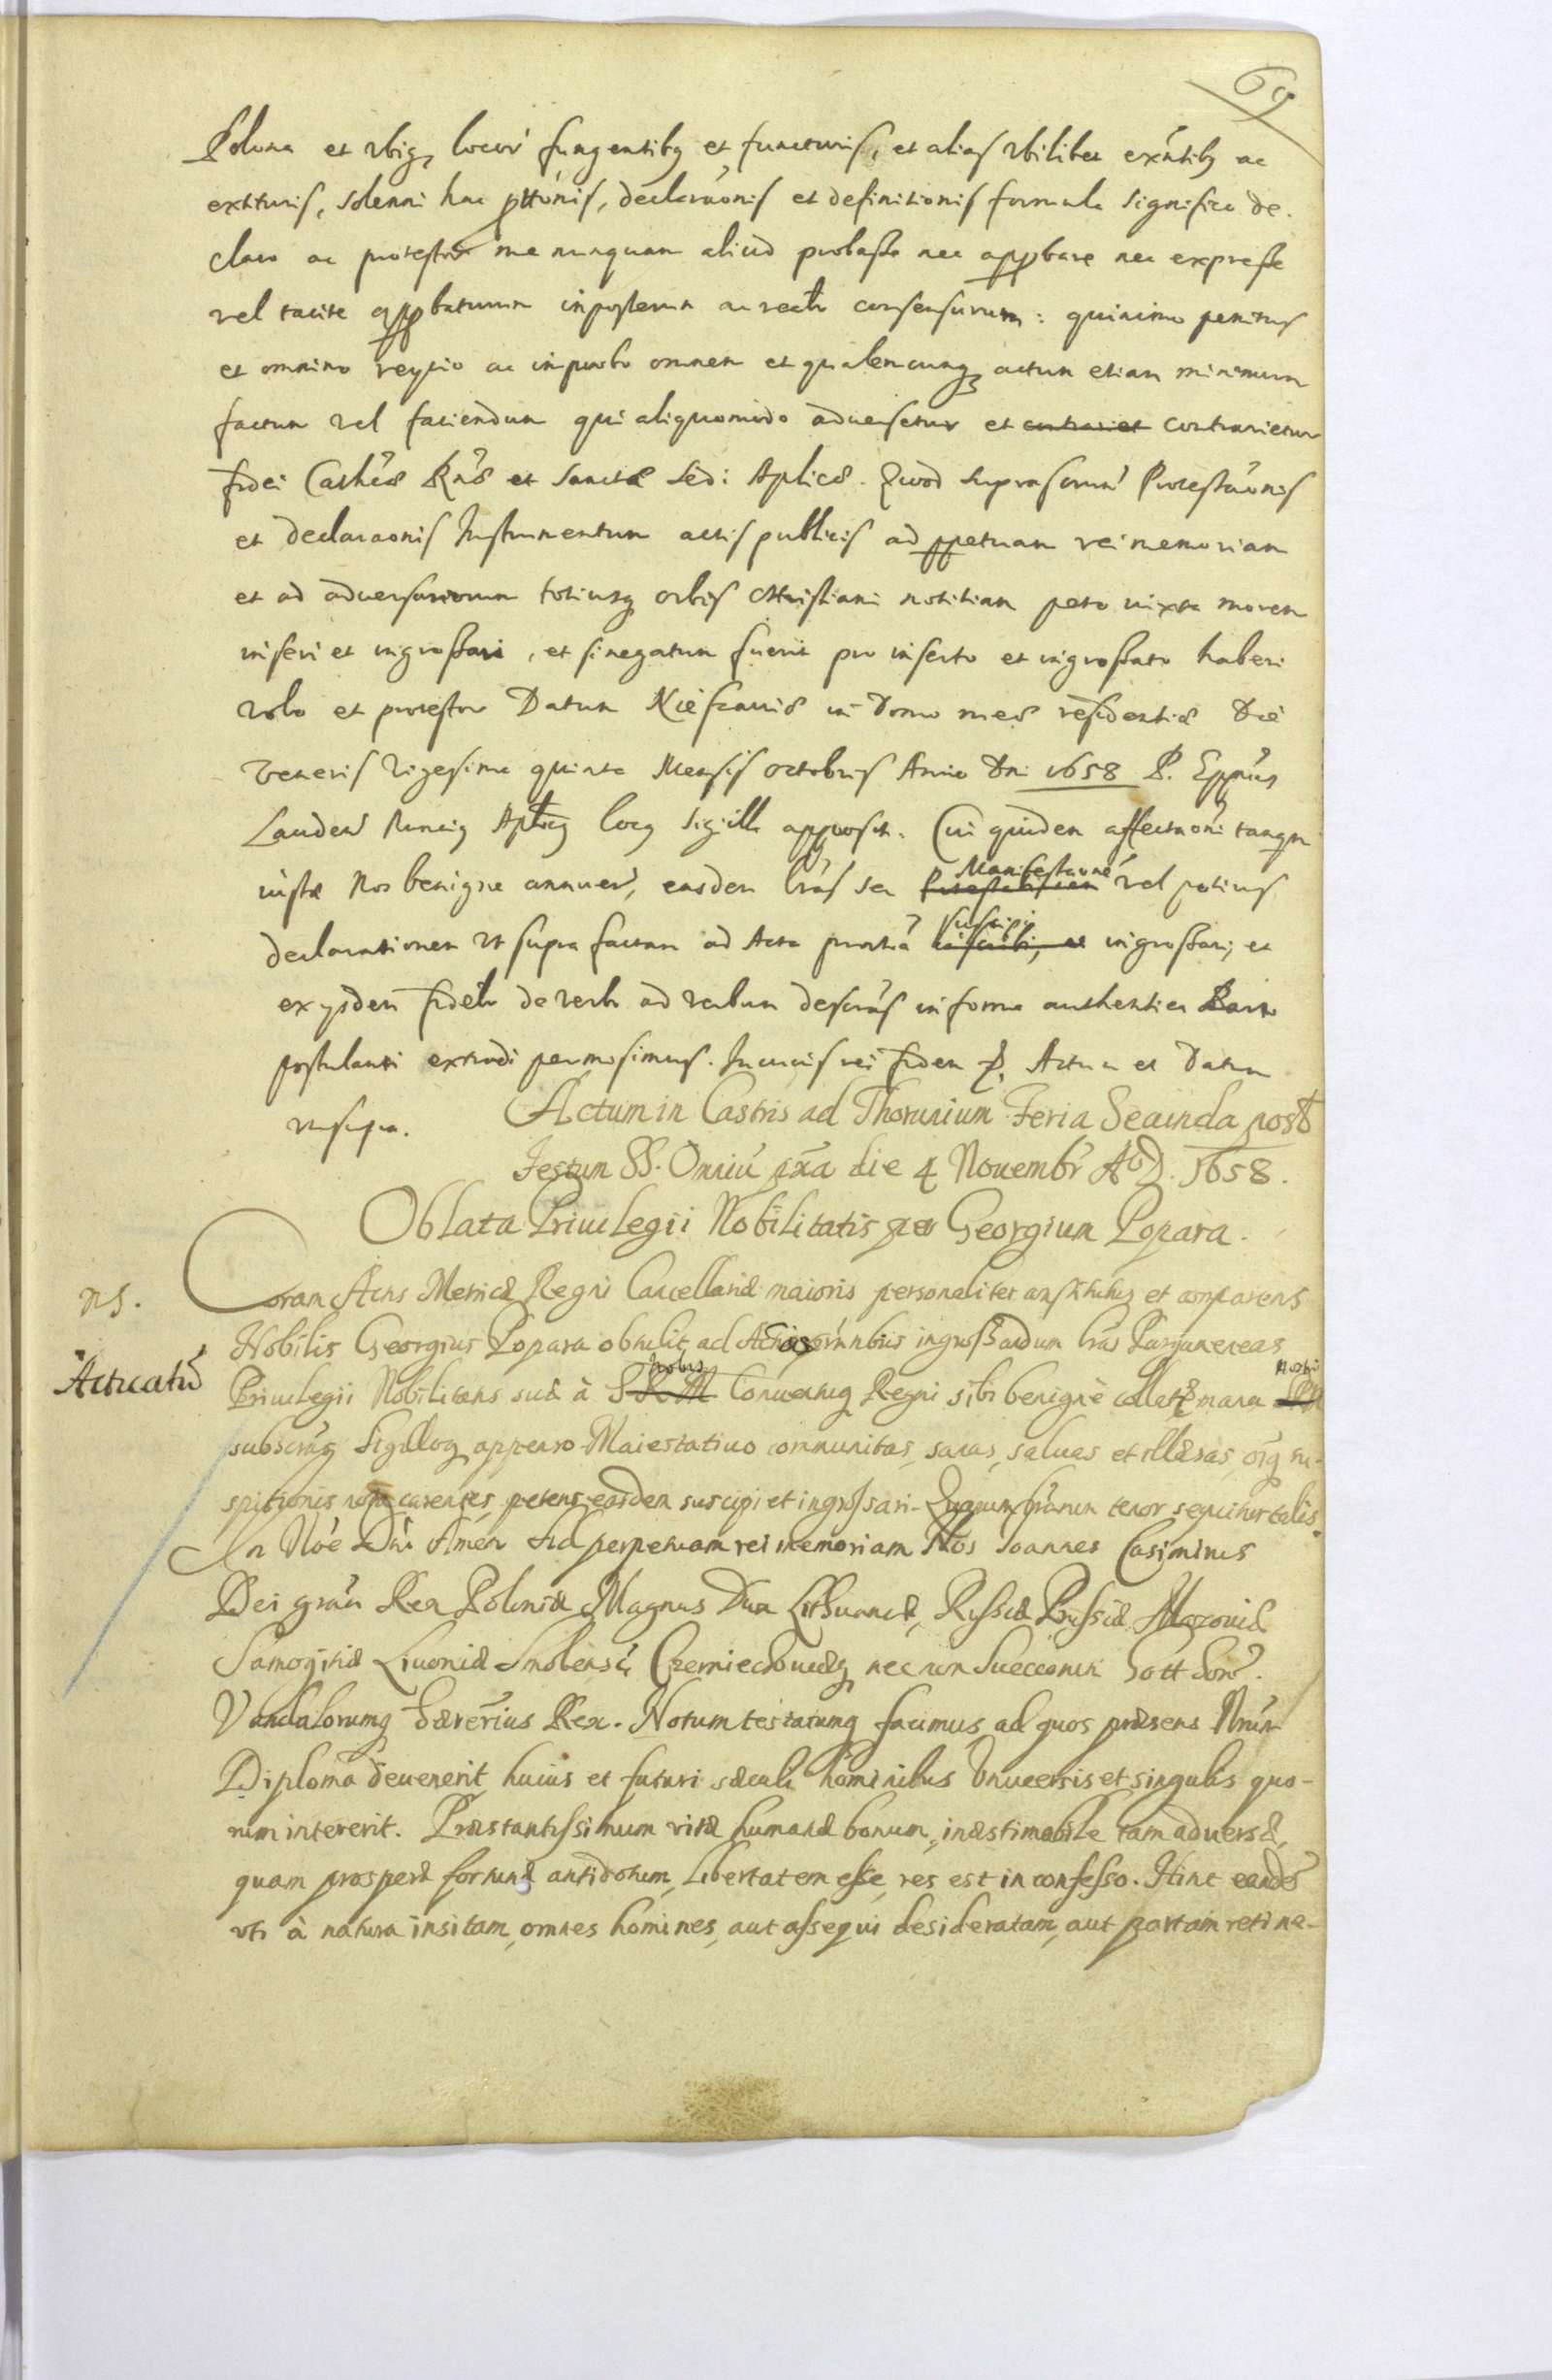 69
Polona et vbiq locor fungentibq et functuris, et alias vbilibet exntibq ac
extituris, solenni hac pttonis, declaraonis et definitionis formula significo de-
claro ac protestor me nunquam aliud probasse nec approbare nec expresse
vel tacite approbaturum inposterum ac recto consensurum: quinimo penitus
et omnino reyicio ac improbo omnem et qualemcunq actum etiam minimum
factum vel faciendum qui aliquomodo aduersetur et contrariet contrarietur
fidei Cathcæ Rnæ et Sanctæ Sedi Aplicæ. Quod suprascrum Protestaonis
et declaraonis Instrumentum actis publicis ad ppetuam rei memoriam
et ad aduersariorum totiusq orbis Christiani notitiam peto iuxta morem
inseri et ingrossari, et si negatum fuerit pro inserto et ingrossato haberi
volo et protestor Datum Niescauiæ in Domo meæ residentiæ Die
Veneris Vigesima quinta Mensis Octobris Anno Dni 1658 P. Eppus
Lauden Nunciq Aplicq locq sigilli appositi. Cui quidem affectaoni tanqm
iustæ Nos benigne annuen, easdem lras seu Protestationem Manifestaonē vel potius
declarationem vt supra factam ad Acta prntia inscribi, et suscipi ingrossari, et
ex ysdem fidelr de verbo ad verbum descras in forma authentica Parti
postulanti extradi permisimus. In cuius rei fidem &. Actum et Datum
vt supra.
Actum in Castris ad Thorunium Feria Secunda post
Festum SS. Omniū pxa die 4 Nouembr A D. 1658.
Oblata Priuilegii Nobilitatis per Georgium Popara.
ns.
Coram Actis Metricæ Regni Cancellariæ maioris personaliter constitutus et comparens
Nobilis Georgius Popara obtulit ad Acta prntibus ingrossandum lras Pargameneas
Acticatū
Priuilegii Nobilitatis suæ à S R M Nobis Conuentuq Regni sibi benignè collati manu Nostra
subscras Sigilloq appenso Maiestatiuo communitas, sanas, saluas et illæsas, oiq su-
spitionis nota carentes, petens easdem suscipi et ingrossari. Quarum lrarum tenor sequitur talis.
In Noē Dni Amen Ad perpetuam rei memoriam Nos Ioannes Casimirus
Dei gra Rex Poloniæ Magnus Dux Lithuaniæ, Russiæ Prussiæ Mazouiæ
Samogitiæ Liuoniæ Smolensc Czerniechouiæq nec non Suecorum Gotthor.
Vandalorumq hæreius Rex. Notum testatumq facimus, ad quos præsens Nrum
Diploma deuenerit, huius et futuri sæculi hominibus Vniuersis et singulis quo-
rum intererit. Præstantissimum vitæ humanæ bonum, inæstimabile tam aduersæ,
quam prosperæ fortunæ antidotum, Libertatem esse, res est in confesso. Hinc eandē
vti à natura insitam, omnes homines, aut assequi desideratam, aut partam retine-